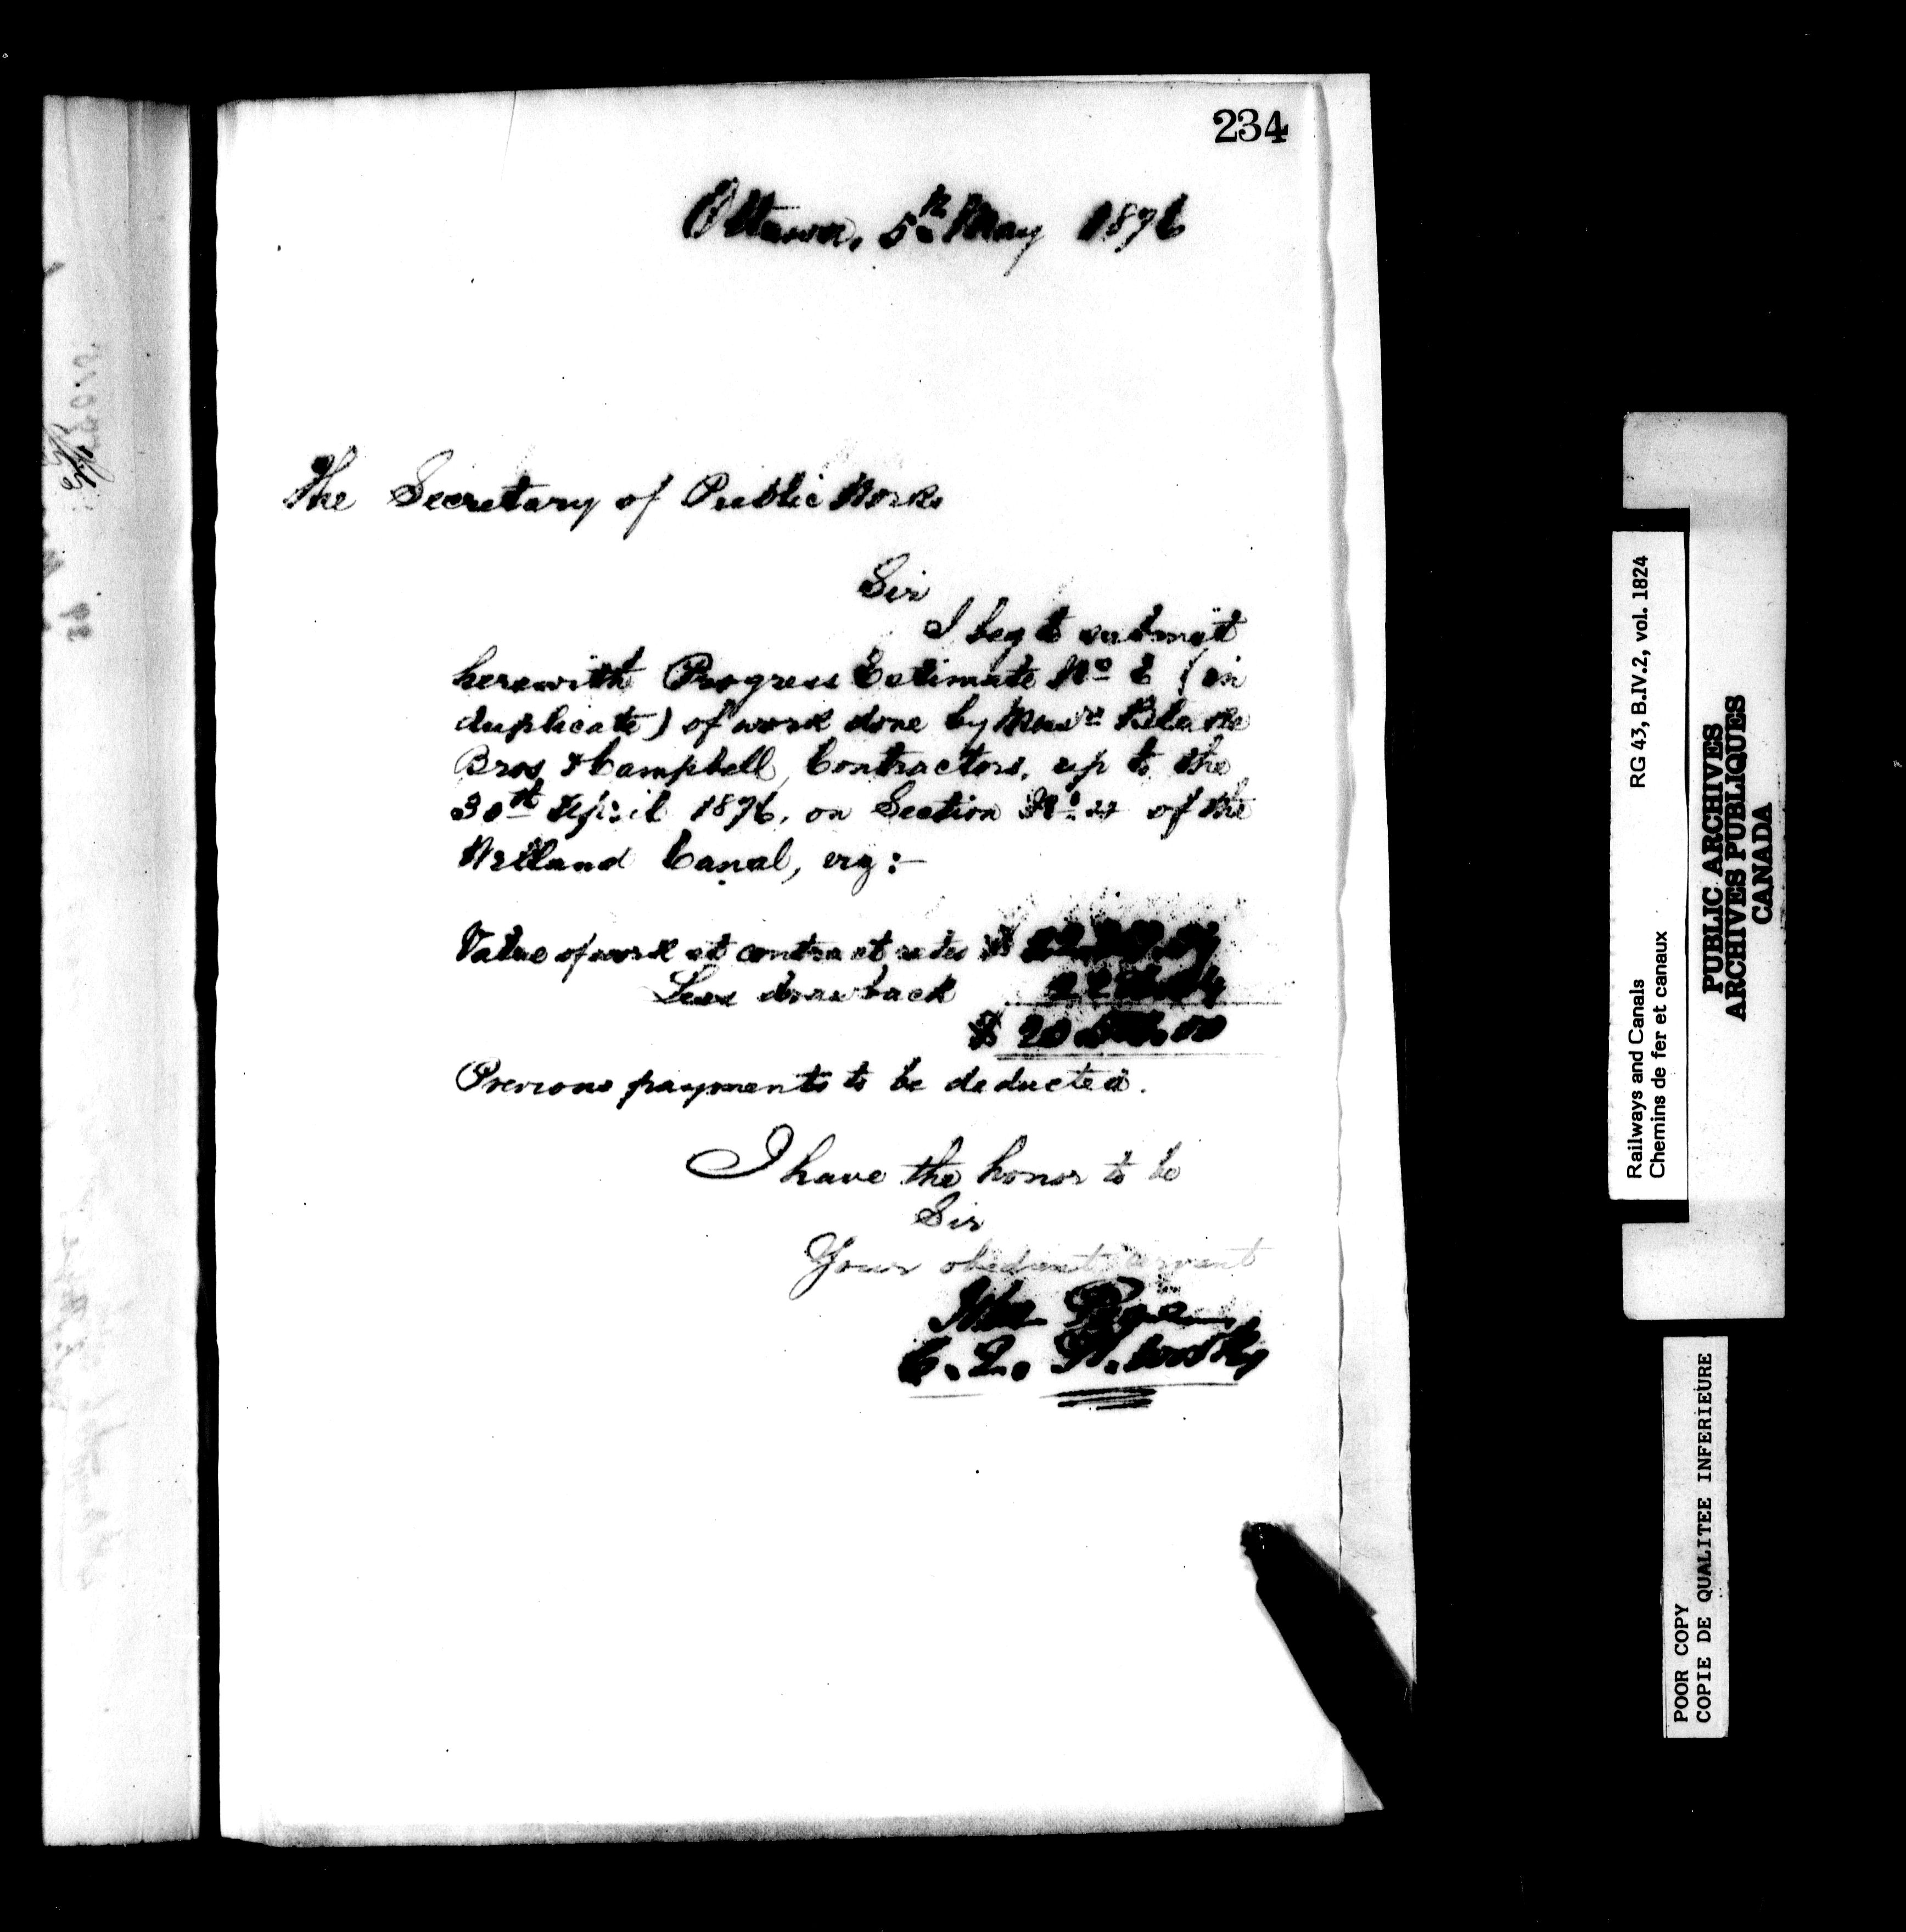 234
Ottawa, 5th May 1876
The Secretary of Public Works
Sir
I beg to submit
herewith Progress Estimate No (in
duplicate) of work done by Messrs
Bros & Campbell, Contractors, up to the
30th April 1876, on Section No of the
Welland Canal, viz:-
Value of work at contract rates $
Less drawback
$ 20
Previous payments to be deducted.
I have the honor to be
Sir
Your obedient servant
Page
C. E. P. Works
RG 43, B.IV.2, vol. 1824
Railways and Canals
Chemins de fer et canaux
PUBLIC ARCHIVES
ARCHIVES PUBLIQUES
CANADA
POOR COPY
COPIE DE QUALITEE INFERIEURE